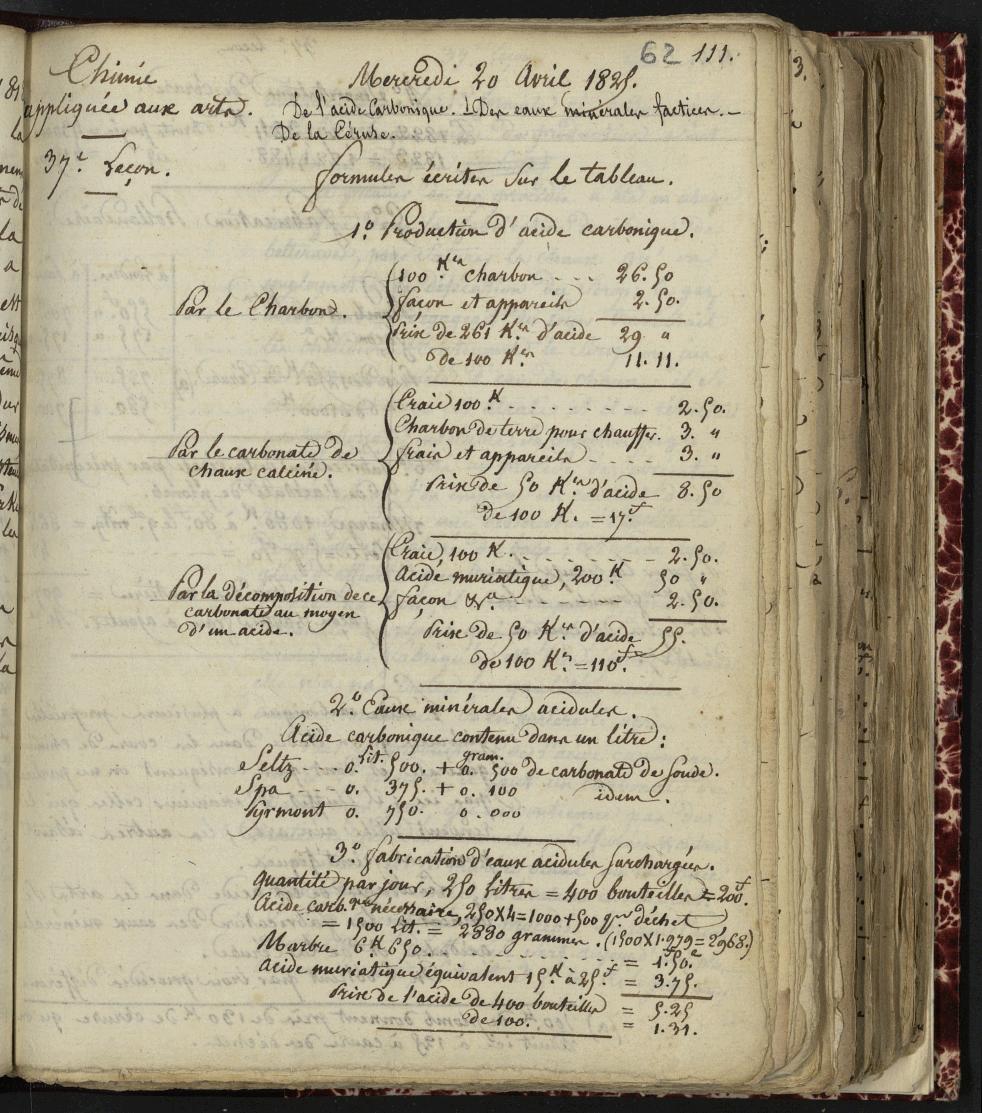 62 111.
Chimie
appliquée aux arts.
37.e Leçon.
Mercredi 20 Avril 1825.
De l'acide Carbonique. – Des eaux minérales factices. –
De la Céruse.
formules écrites sur le tableau.
1.o Production d'acide carbonique.
Par le Charbon.
100 K.es charbon . . . 26.50
façon et appareils 2.50.
Prix de 261 K.es d'acide 29 "
de 100 K.es 11.11.
Par le carbonate de
chaux calciné.
Craie 100.K . . . . . . . . 2.50.
Charbon de terre pour chauffer. 3. "
frais et appareils . . . . 3. "
Prix de 50 K.es d'acide 8.50
de 100 K. = 17.f
Par la décomposition de ce
carbonate au moyen
d'un acide.
Craie, 100 K. . . . . . . . 2.50.
Acide muriatique, 200 K 50 "
façon &.a . . . . . . 2.50.
Prix de 50 K.es d'acide 55.
de 100 K.s = 110.f
2.o Eaux minérales acidules.
Acide carbonique contenu dans un litre :
Seltz . . . 0. lit. 500. + 0. gram. 500 de carbonate de soude.
Spa . . . . 0. 375. + 0. 100 idem.
Pyrmont 0. 750. 0.000
3.o fabrication d'eaux acidules surchargées.
quantité par jour, 250 litres = 400 bouteilles = 200.f
Acide carb.que nécessaire, 250X4=1000+500 p.r déchet
= 1500 lit. = 2880 grammes. (1500X1.979=2968.)
Marbre 6.K 650. . . . . . . . . . . = 1.50.c
Acide muriatique équivalent 15.K à 25.f = 3.75.
Prix de l'acide de 400 bouteilles = 5.25
de 100. = 1.31.